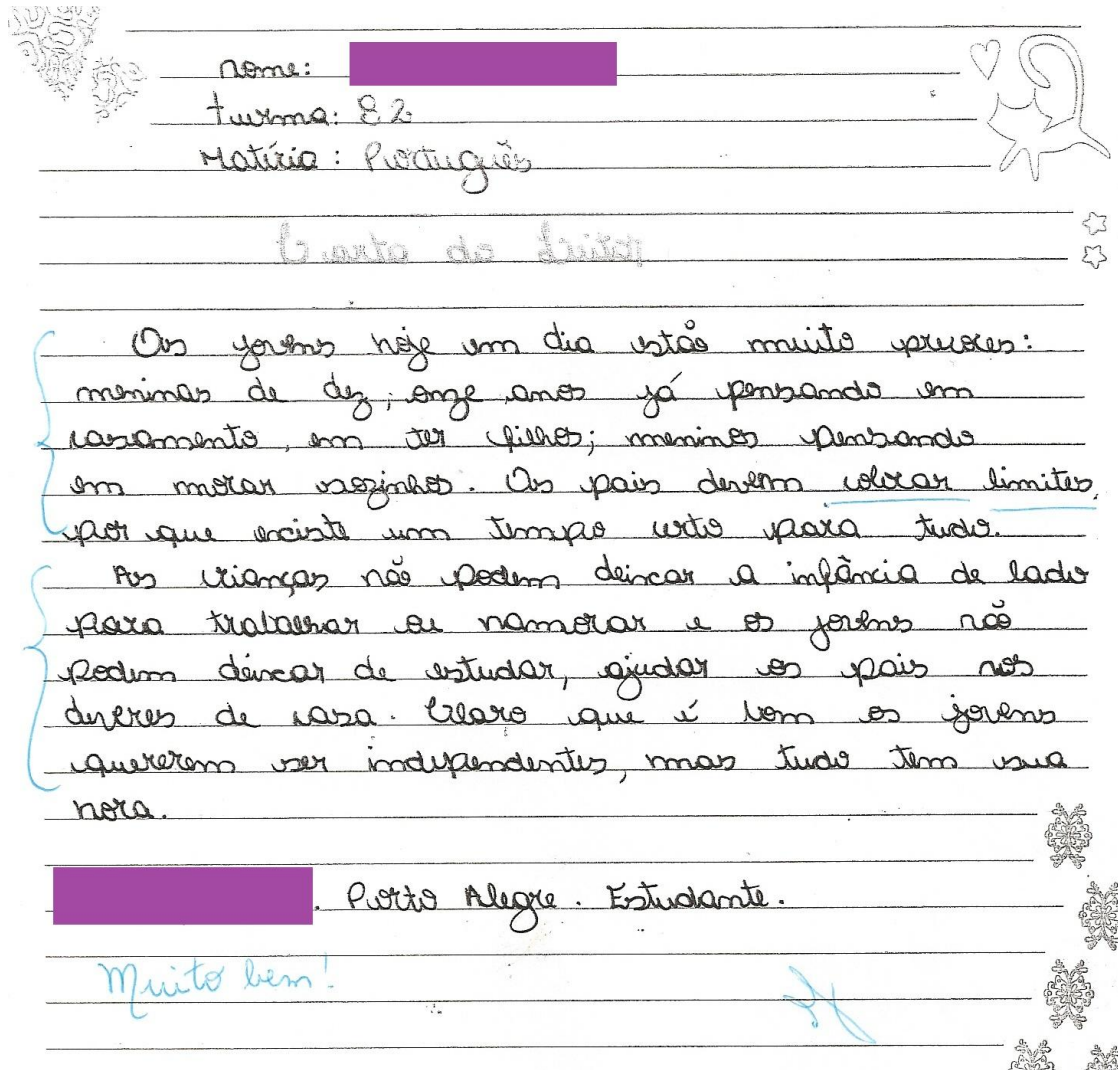 nome:
turma: 82
Matéria: Português
Carta do Leitor
Os jovens hoje em dia estão muito precoces:
meninas de dez, onze anos já pensando em
casamento, em ter filhos; meninos pensando
em morar sozinhos. Os pais devem colocar limites,
por que existe um tempo certo para tudo.
As crianças não podem deixar a infância de lado
para trabalhar ou namorar e os jovens não
podem deixar de estudar, ajudar os pais nos
deveres de casa. Claro que é bom os jovens
quererem ser independentes, mas tudo tem sua
hora.
. Porto Alegre. Estudante.
Muito bem!